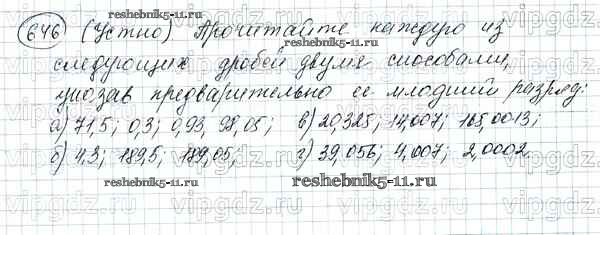 reshebnik5-11.ru
646 (Устно) Прочитайте каждую из
следующих дробей двумя способами,
указав предварительно ее младший разряд:
а) 71,5; 0,3; 0,93, 98,05; в) 20,325; 14,007; 165,0013;
б) 4,3; 189,5; 189,05; г) 39,056; 4,007; 2,0002
reshebnik5-11.ru reshebnik5-11.ru
vipgdz.ru